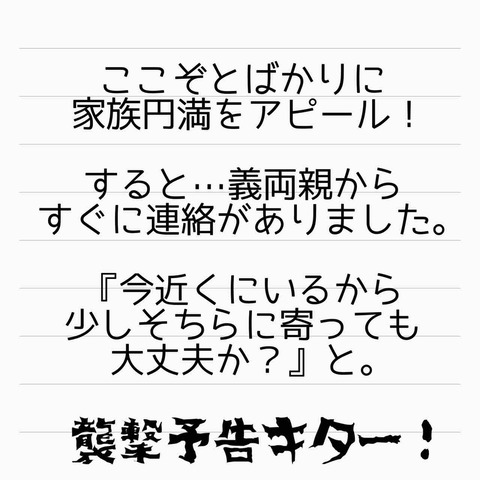 ここぞとばかりに
家族円満をアピール！
すると…義両親から
すぐに連絡がありました。
『今近くにいるから
少しそちらに寄っても
大丈夫か？』と。
襲撃予告キター！